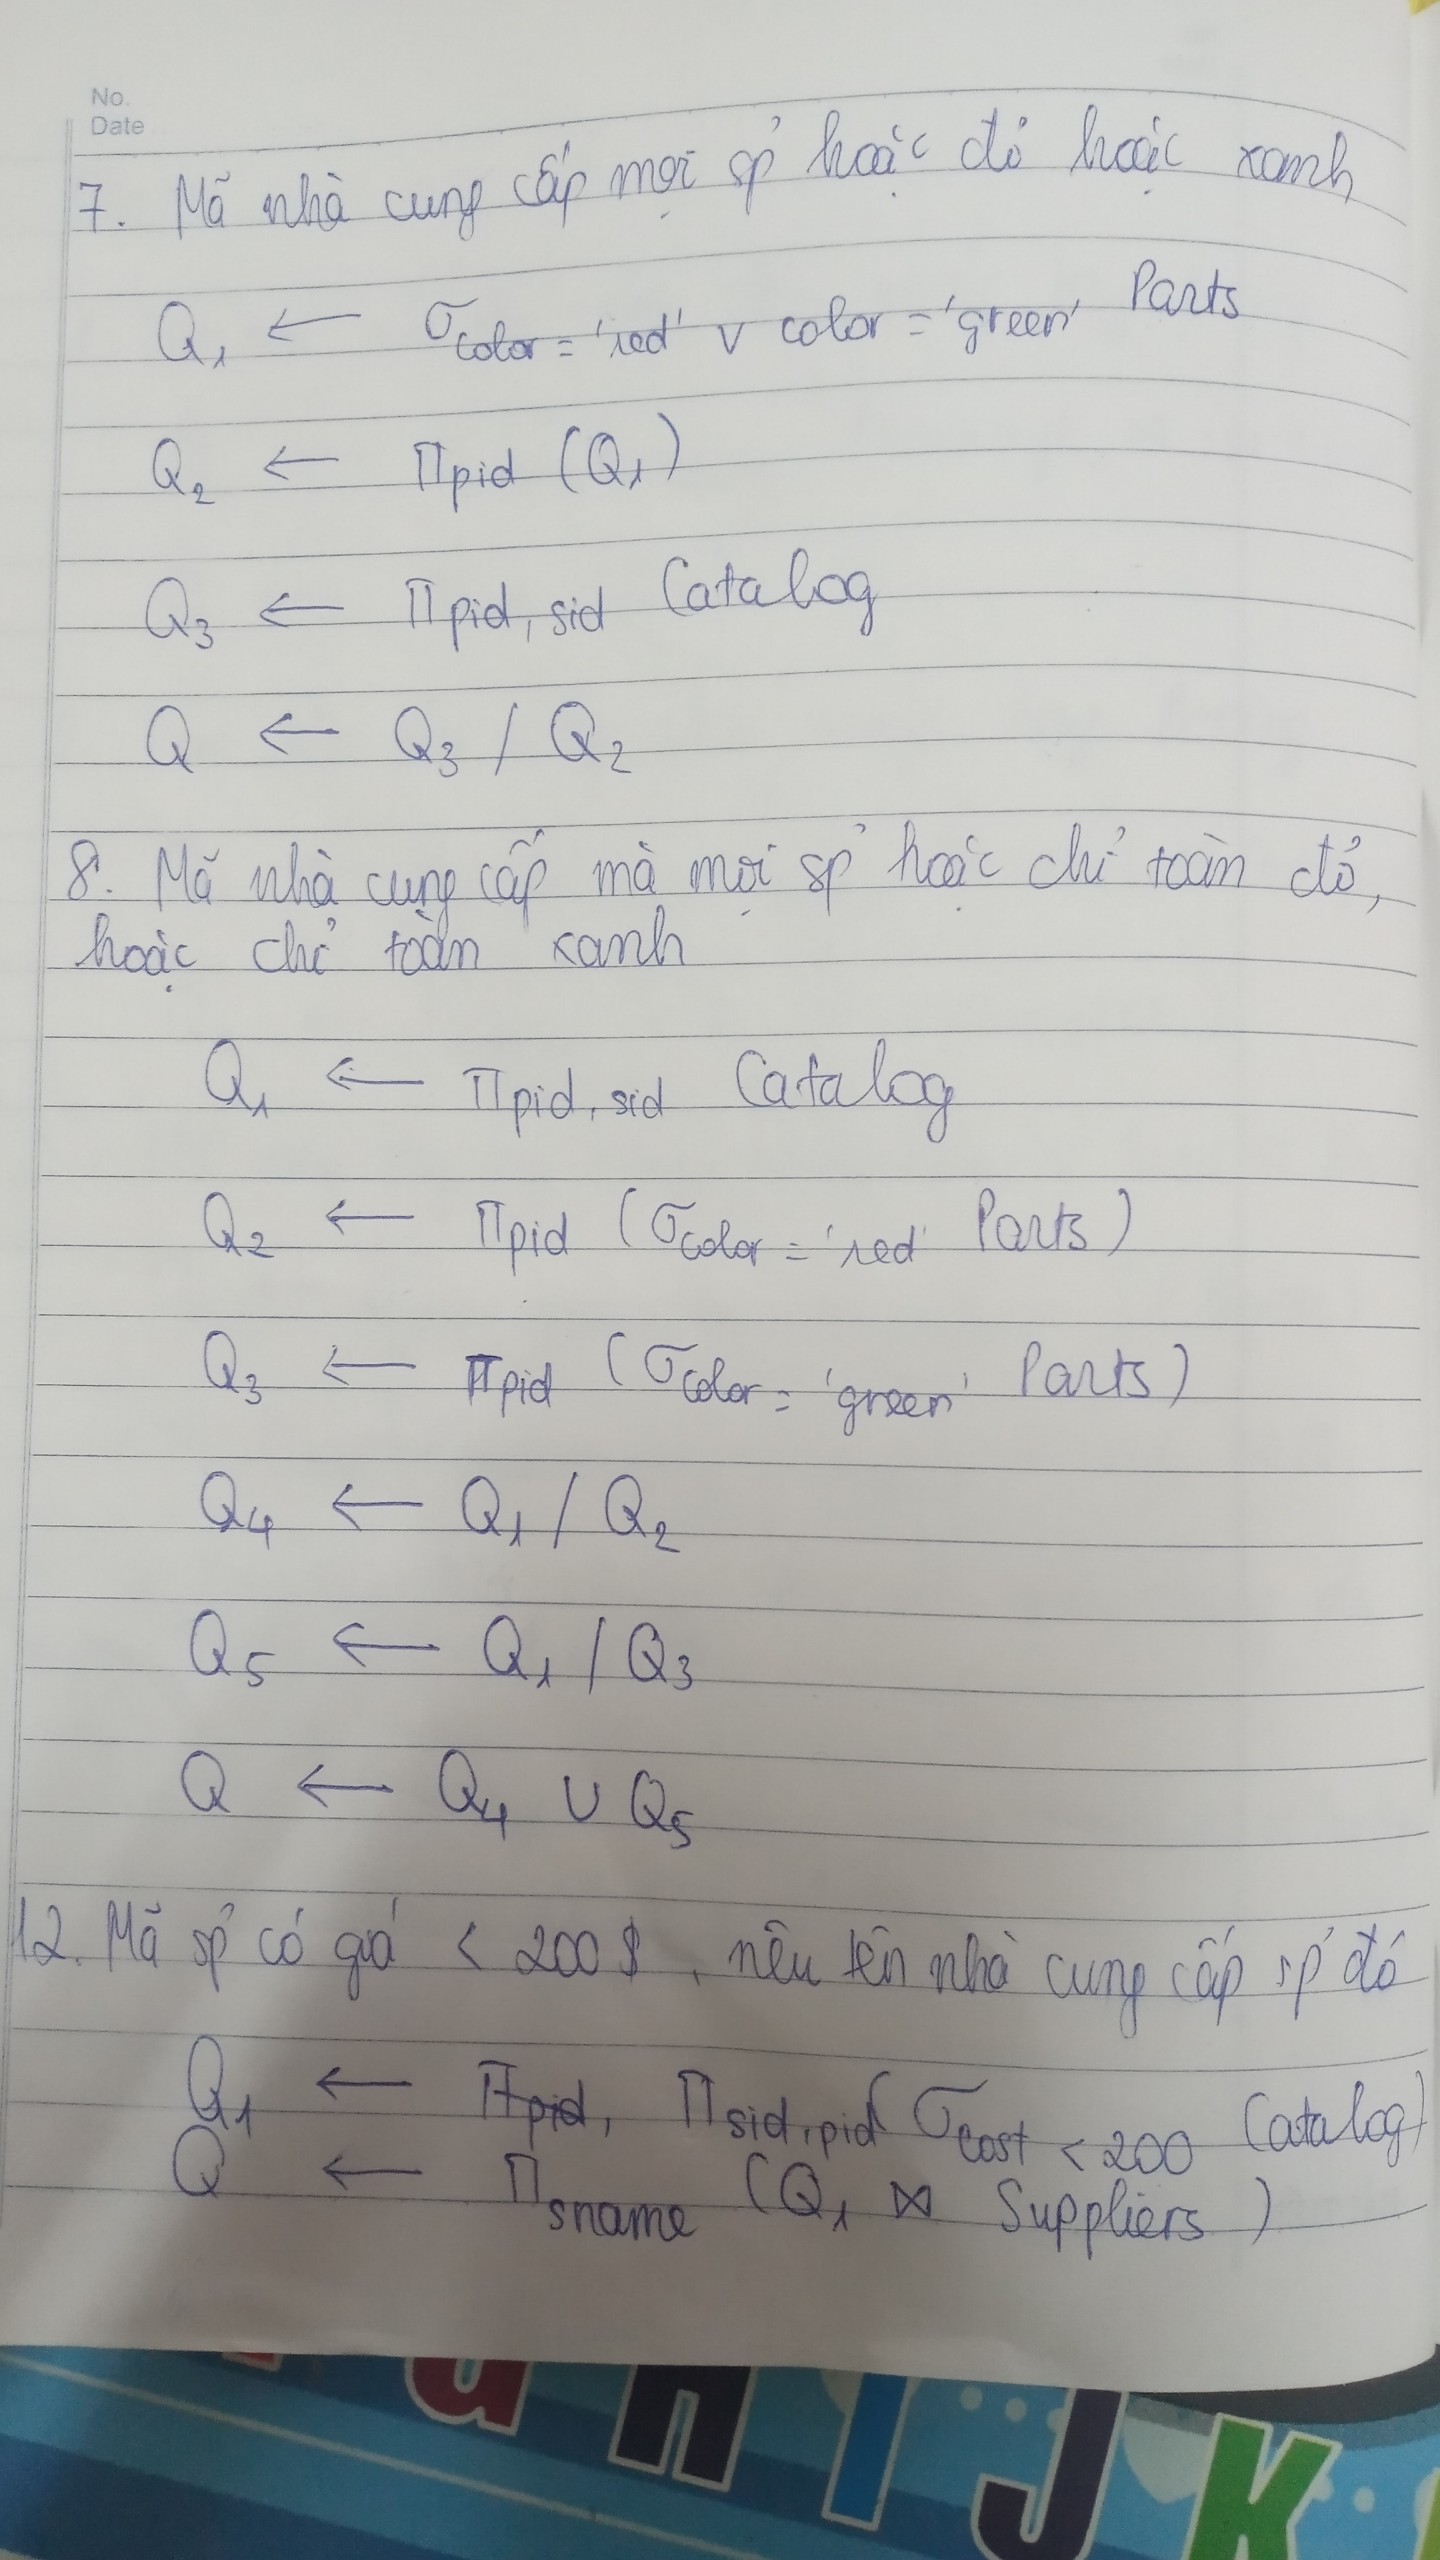 No.
Date
7. Mã nhà cung cấp mọi sp hoặc đỏ hoặc xanh
Q₁ ← σcolor = 'red' ∨ color = 'green' Parts
Q₂ ← Πpid (Q₁)
Q₃ ← Πpid, sid Catalog
Q ← Q₃ / Q₂
8. Mã nhà cung cấp mà mọi sp hoặc chỉ toàn đỏ,
hoặc chỉ toàn xanh
Q₁ ← Πpid, sid Catalog
Q₂ ← Πpid (σcolor = 'red' Parts)
Q₃ ← Πpid (σcolor = 'green' Parts)
Q₄ ← Q₁ / Q₂
Q₅ ← Q₁ / Q₃
Q ← Q₄ ∪ Q₅
12. Mã sp có giá < 200$, nêu tên nhà cung cấp sp đó
Q₁ ← Πpid, Πsid, pid (σcost < 200 Catalog)
Q ← Πsname (Q₁ ⋈ Suppliers)
H I J K